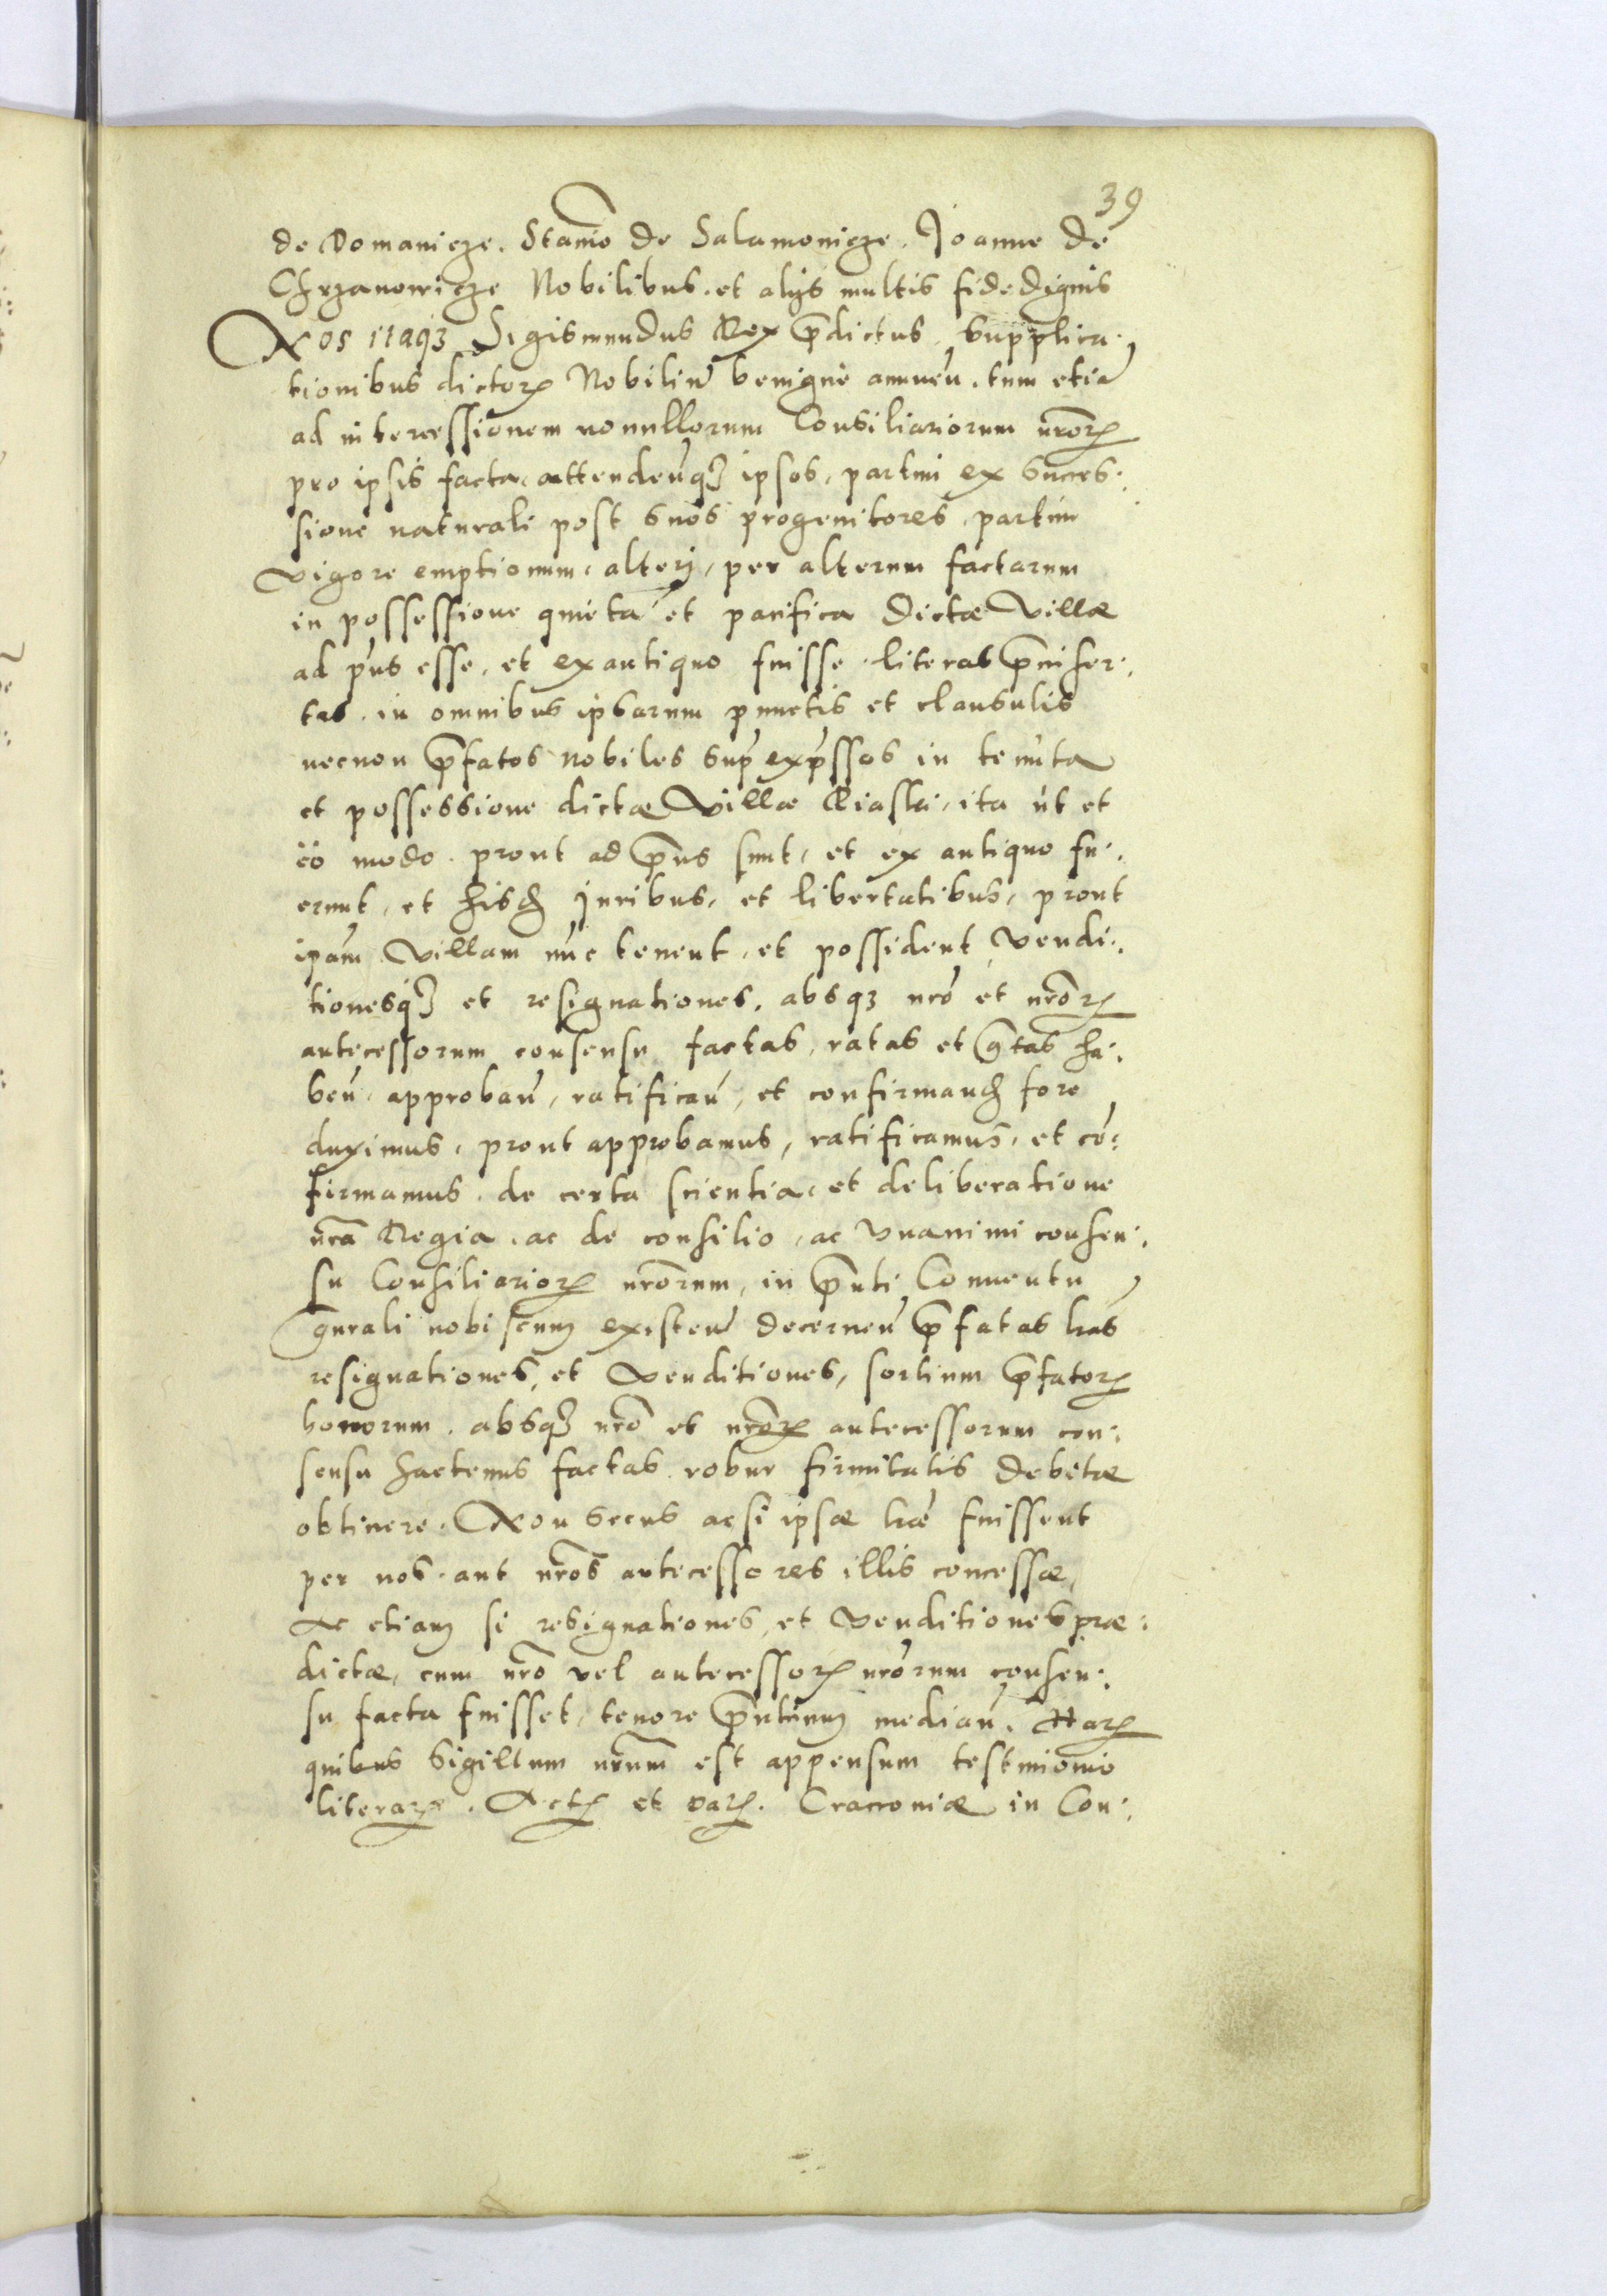 39
de Domanicze. Stan̄io de Salamonicze. Joanne de
Chrzanowicze Nobilibus. et alijs multis fidedignis
Nos itaqꝫ Sigismundus Rex p̄dictus, supplica:
tionibus dictoꝝ Nobiliū benigne annueñ. tum etiā
ad intercessionem nonullorum Consiliariorum nr̄oꝝ
pro ipsis facta, attendeñqꝫ ipsos, partim ex succes:
sione naturali post suos progenitores, partim
vigore emptionum, alterj, per alterum factarum
in possessione quieta et pacifica dictæ Villæ
ad p̄ns esse, et exantiquo fuisse, literas p̄niser:
tas, in omnibus ipsarum punctis et clausulis
necnon p̄fatos nobiles sup̄ exp̄ssos in tenuta
et possessione dictæ Villæ Piaski, ita ut et
eo modo, prout ad p̄ns sunt, et ex antiquo fu:
erunt, et hisdꝫ juribus, et libertatibus, prout
ip̄am Villam nūc tenent, et possident, Vendi:
tionesqꝫ et resignationes, absqꝫ nr̄o et nr̄oꝝ
antecessorum consensu factas, ratas et g̃tas ha:
beñ, approbañ, ratificañ, et confirmandꝫ fore
duximus, prout approbamus, ratificamus, et cō:
firmamus, de certa scientia, et deliberatione
nr̄a Regia, ac de consilio, ac Vnanimi consen:
su Consiliarioꝝ nr̄orum, in p̄nti Conuentu
gn̄rali nobiscum existeñ decerneñ p̄fatas lr̄as
resignationes, et Venditiones, sortium p̄fatoꝝ
bonorum, absqꝫ nr̄o et nr̄oꝝ antecessorum con:
sensu hactenus factas robur firmitatis debitæ
obtinere. Non secus acsi ipsæ lr̄æ fuissent
per nos, aut nr̄os antecessores illis concessæ,
Ac etiam si resignationes, et Venditiones præ:
dictæ, cum nr̄o vel antecessoꝝ nr̄orum consen:
su facta fuisset, tenore p̄ntium mediañ. Haꝝ
quibus Sigillum nr̄um est appensum testimonio
literaꝝ. Actꝝ et Daꝝ. Cracoviæ in Con: